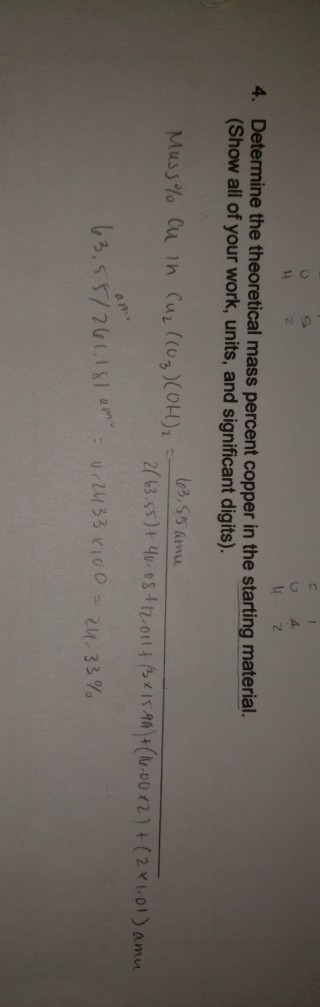 O 5
H 2
C 1
O 4
H 2
4. Determine the theoretical mass percent copper in the starting material.
(Show all of your work, units, and significant digits).
Mass% Cu in Cu2(CO3)(OH)2 = 63.55 amu
2(63.55) + 40.08 + 12.011 + (3x15.99) + (16.00x2) + (2x1.01) amu
63.55 amu / 261.181 amu = 0.2433 x 100 = 24.33%